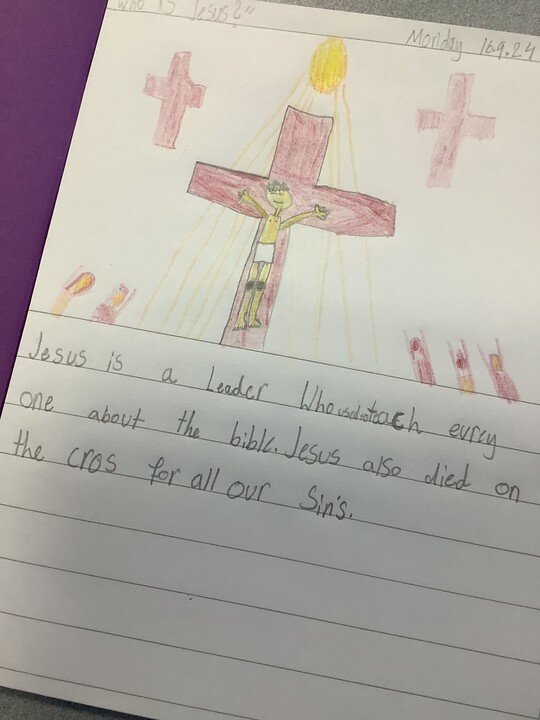 Who is Jesus?"
Monday 16.9.24
Jesus is a Leader Who used to teach evrey
one about the bible. Jesus also died on
the cros for all our Sin's.